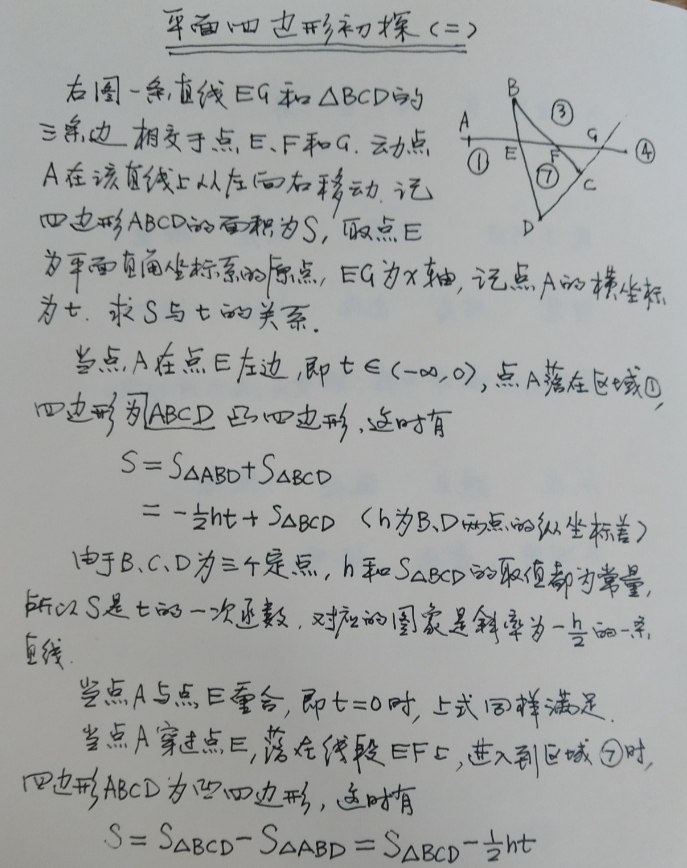 平面四边形初探(二)
右图一条直线EG和△BCD的
三条边相交于点E、F和G.动点
A在该直线上从左向右移动.记
四边形ABCD的面积为S,取点E
为平面直角坐标系的原点,EG为x轴,记点A的横坐标
为t.求S与t的关系.
B
③
A
G
④
①
E
F
⑦
C
D
当点A在点E左边,即t∈(-∞,0),点A落在区域①,
四边形为ABCD凸四边形,这时有
S=S△ABD+S△BCD
=-½ht+S△BCD (h为B、D两点的纵坐标差)
由于B、C、D为三个定点,h和S△BCD的取值都为常量,
所以S是t的一次函数.对应的图象是斜率为-h/2的一条
直线.
当点A与点E重合,即t=0时,上式同样满足.
当点A穿过点E,落在线段EF上,进入到区域⑦时,
四边形ABCD为凹四边形,这时有
S=S△BCD-S△ABD=S△BCD-½ht